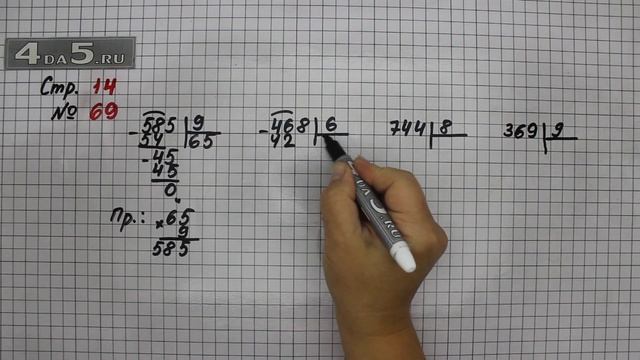 4DA5.RU
Стр. 14
№ 69
- 585 | 9
54 | 65
- 45
45
0
Пр.: × 65
9
585
- 468 | 6
42
744 | 8
369 | 9